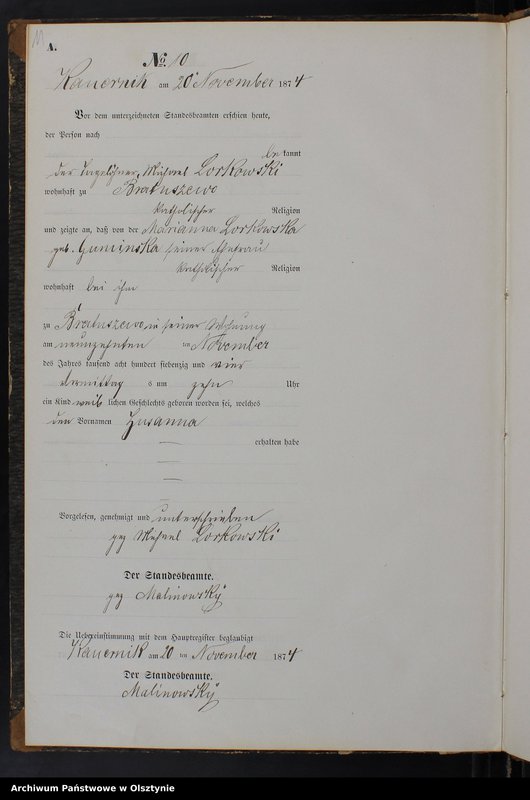 11
A.
No. 10
Kauernik am 20ten November 1874
Vor dem unterzeichneten Standesbeamten erschien heute,
der Person nach
be kannt
der Tagelöhner Michael Lorkowski
wohnhaft zu Bratuszewo
katholischer Religion
und zeigte an, daß von der Marianna Lorkowska
geb. Guminska seiner Ehefrau
katholischer Religion
wohnhaft bei ihm
zu Bratuszewo in seiner Wohnung
am neunzehnten ten November
des Jahres tausend acht hundert siebenzig und vier
Vormittag s um zehn Uhr
ein Kind weib lichen Geschlechts geboren worden sei, welches
den Vornamen Zusanna
erhalten habe
Vorgelesen, genehmigt und unterschrieben
gez Michael Lorkowski
Der Standesbeamte.
gez Malinowsky
Die Uebereinstimmung mit dem Hauptregister beglaubigt
Kauernik am 20 ten November 1874
Der Standesbeamte.
Malinowsky
Archiwum Państwowe w Olsztynie